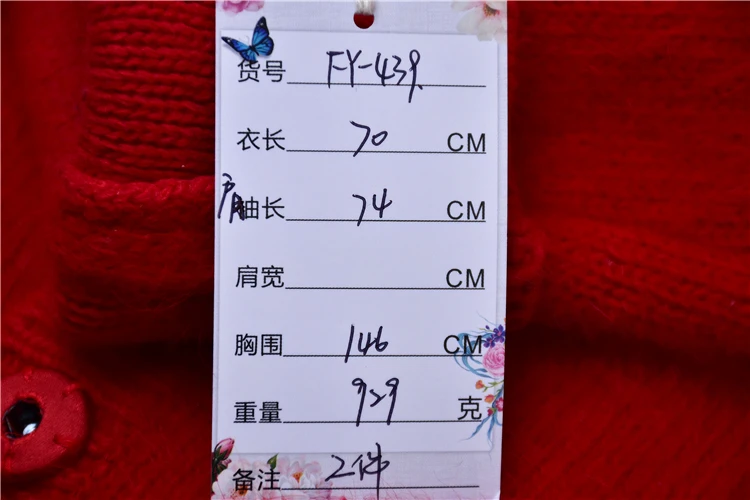 货号 FY-439
衣长 70 CM
肩袖长 74 CM
肩宽 CM
胸围 146 CM
重量 929 克
备注 2件